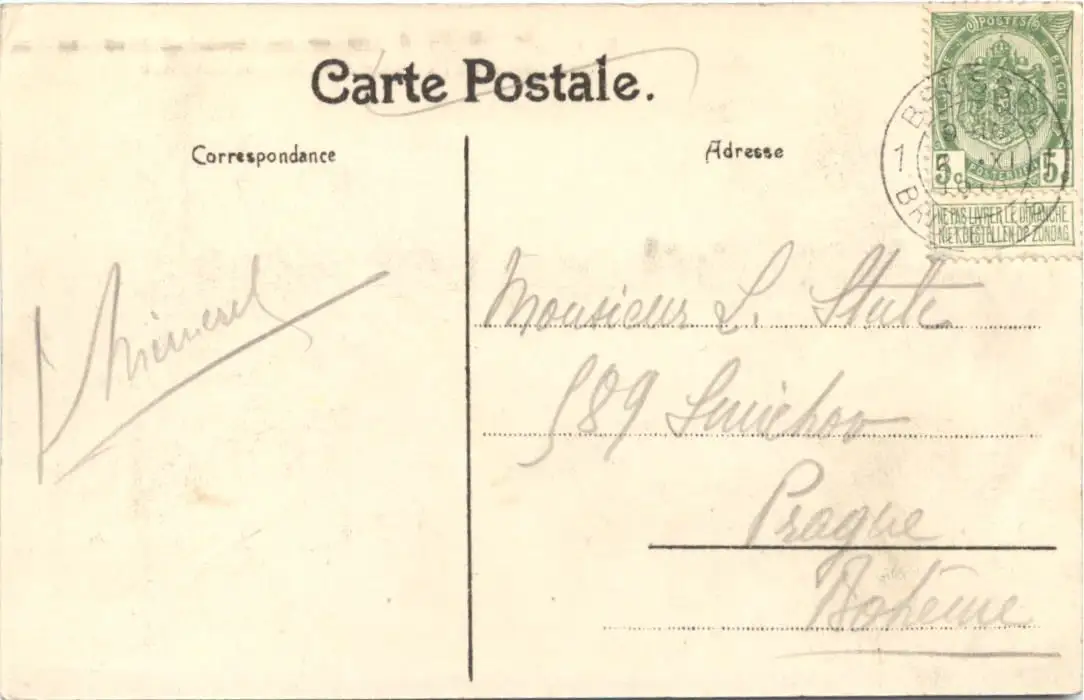 Carte Postale.
Correspondance
Adresse
POSTES
BELGIQUE
BELGIË
5 5
POSTERIJEN
NE PAS LIVRER LE DIMANCHE
NIET BESTELLEN OP ZONDAG
1
Monsieur L. State
589 Smichov
Prague
Bohême